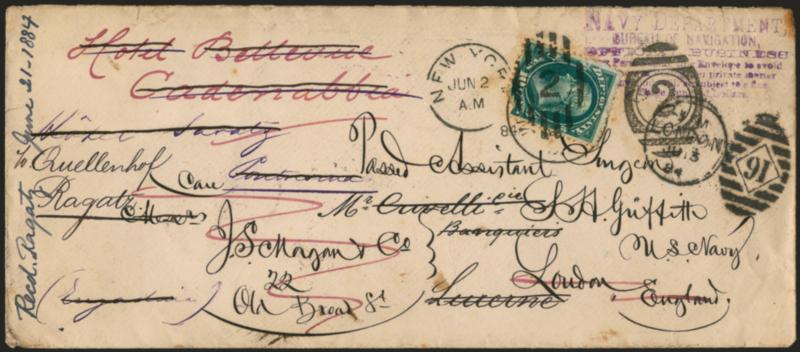 Recd. Ragatz June 21-1884
Hotel Bellevue
Cadenabbia
NEW YORK
JUN 2
A.M
84
2
NAVY DEPARTMENT,
BUREAU OF NAVIGATION,
OFFICIAL BUSINESS
Envelope to avoid
private matter
subject to a fine
2
LONDON
JU 3
84
91
Hôtel Saratz
Quellenhof
Ragatz
Passed Assistant Surgeon
Care
Pontresina
Mr. Crivelli & cie
S. H. Griffith
Banquiers
U.S. Navy
J. S. Morgan & Co
22
Old Broad St
London
Lucerne
England.
(Engadin)